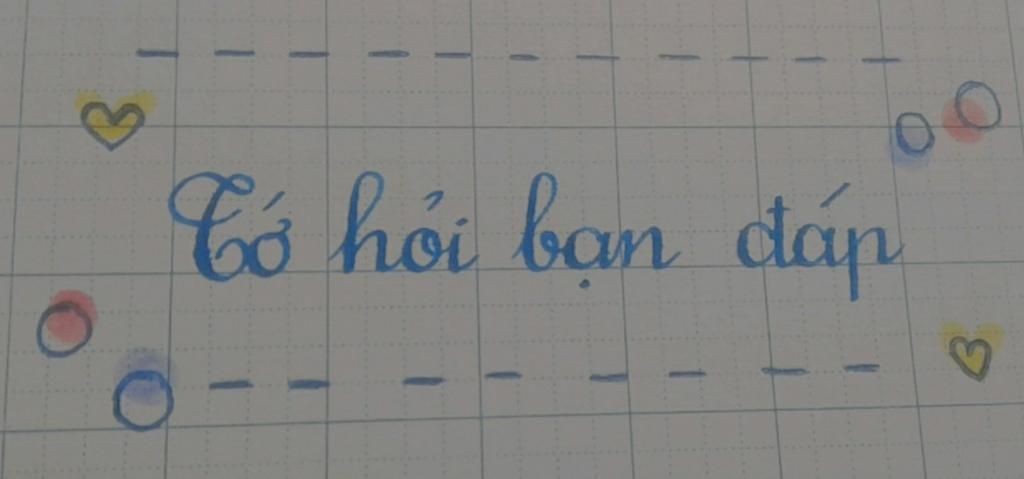 Tớ hỏi bạn đáp